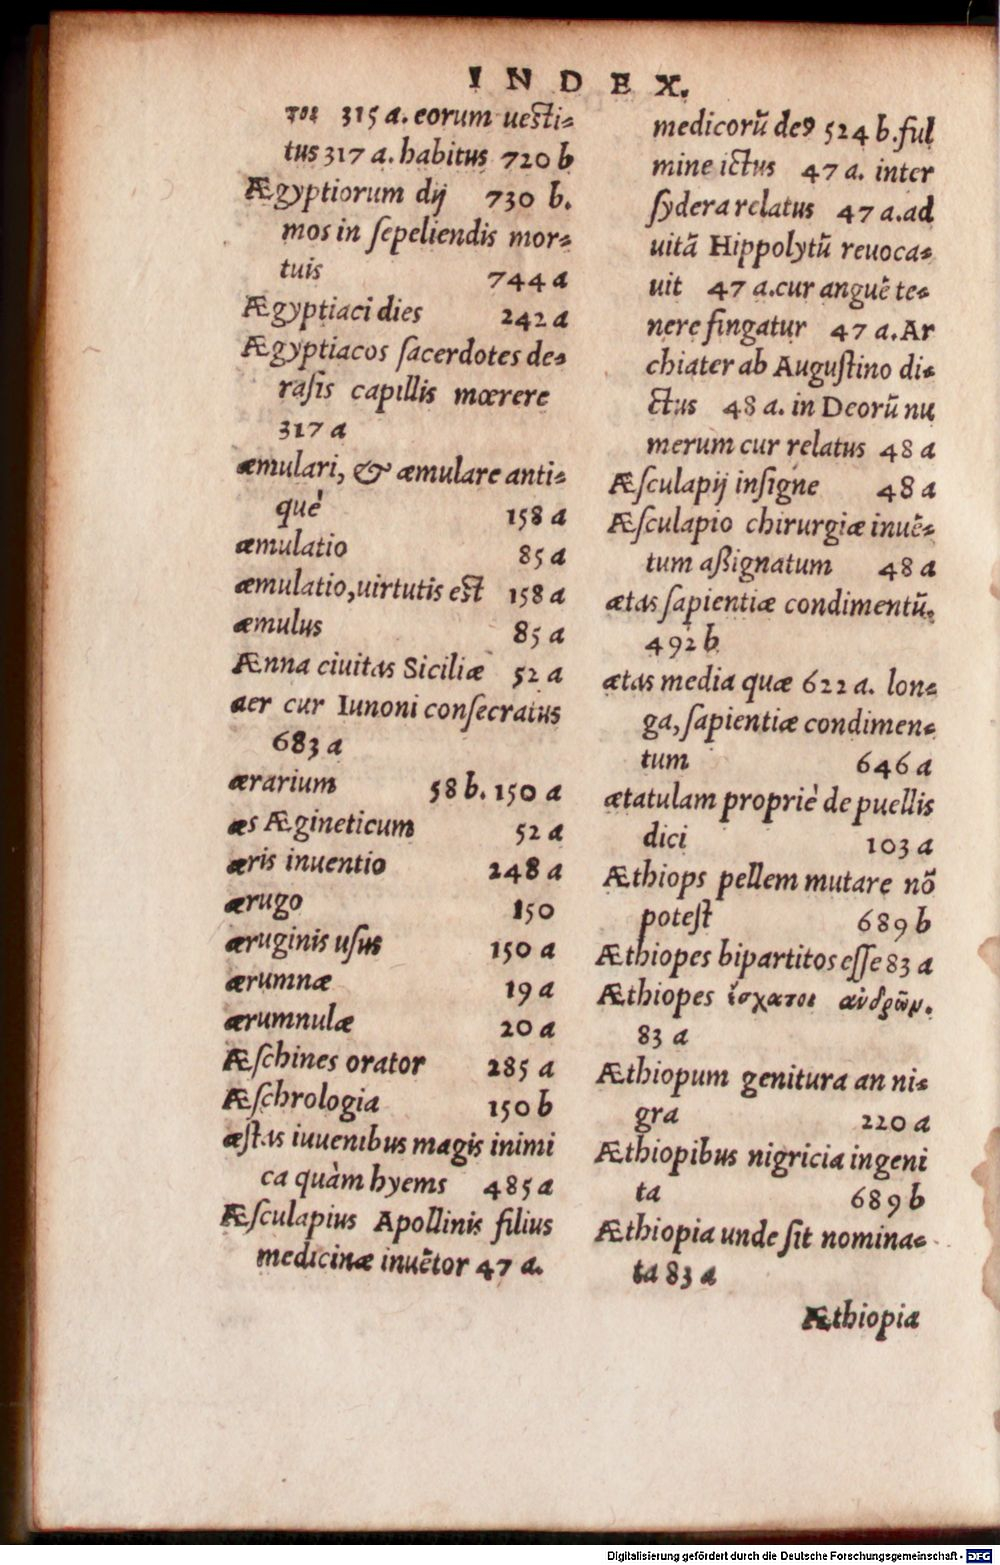 INDEX.
τοι 315 a. eorum uesti-
tus 317 a. habitus 720 b
Ægyptiorum dij 730 b.
mos in ſepeliendis mor-
tuis 744 a
Ægyptiaci dies 242 a
Ægyptiacos ſacerdotes de-
raſis capillis mœrere
317 a
æmulari, & æmulare anti-
què 158 a
æmulatio 85 a
æmulatio, uirtutis est 158 a
æmulus 85 a
Ænna ciuitas Siciliæ 52 a
aer cur Iunoni conſecratus
683 a
ærarium 58 b. 150 a
æs Ægineticum 52 a
æris inuentio 248 a
ærugo 150
æruginis uſus 150 a
ærumnæ 19 a
ærumnulæ 20 a
Æſchines orator 285 a
Æſchrologia 150 b
æſtas iuuenibus magis inimi
ca quàm hyems 485 a
Æſculapius Apollinis filius
medicinæ inuētor 47 a.
medicorū deꝰ 524 b. ful
mine ictus 47 a. inter
ſydera relatus 47 a. ad
uitā Hippolytū reuoca-
uit 47 a. cur anguē te-
nere fingatur 47 a. Ar
chiater ab Auguſtino di-
ctus 48 a. in Deorū nu
merum cur relatus 48 a
Æſculapij inſigne 48 a
Æſculapio chirurgiæ inuē-
tum aßignatum 48 a
ætas ſapientiæ condimentū.
492 b
ætas media quæ 622 a. lon-
ga, ſapientiæ condimen-
tum 646 a
ætatulam propriè de puellis
dici 103 a
Æthiops pellem mutare nō
poteſt 689 b
Æthiopes bipartitos eſſe 83 a
Æthiopes ἔσχατοι ἀνδρῶν.
83 a
Æthiopum genitura an ni-
gra 220 a
Æthiopibus nigricia ingeni
ta 689 b
Æthiopia unde ſit nomina-
ta 83 a
Æthiopia
Digitalisierung gefördert durch die Deutsche Forschungsgemeinschaft - DFG